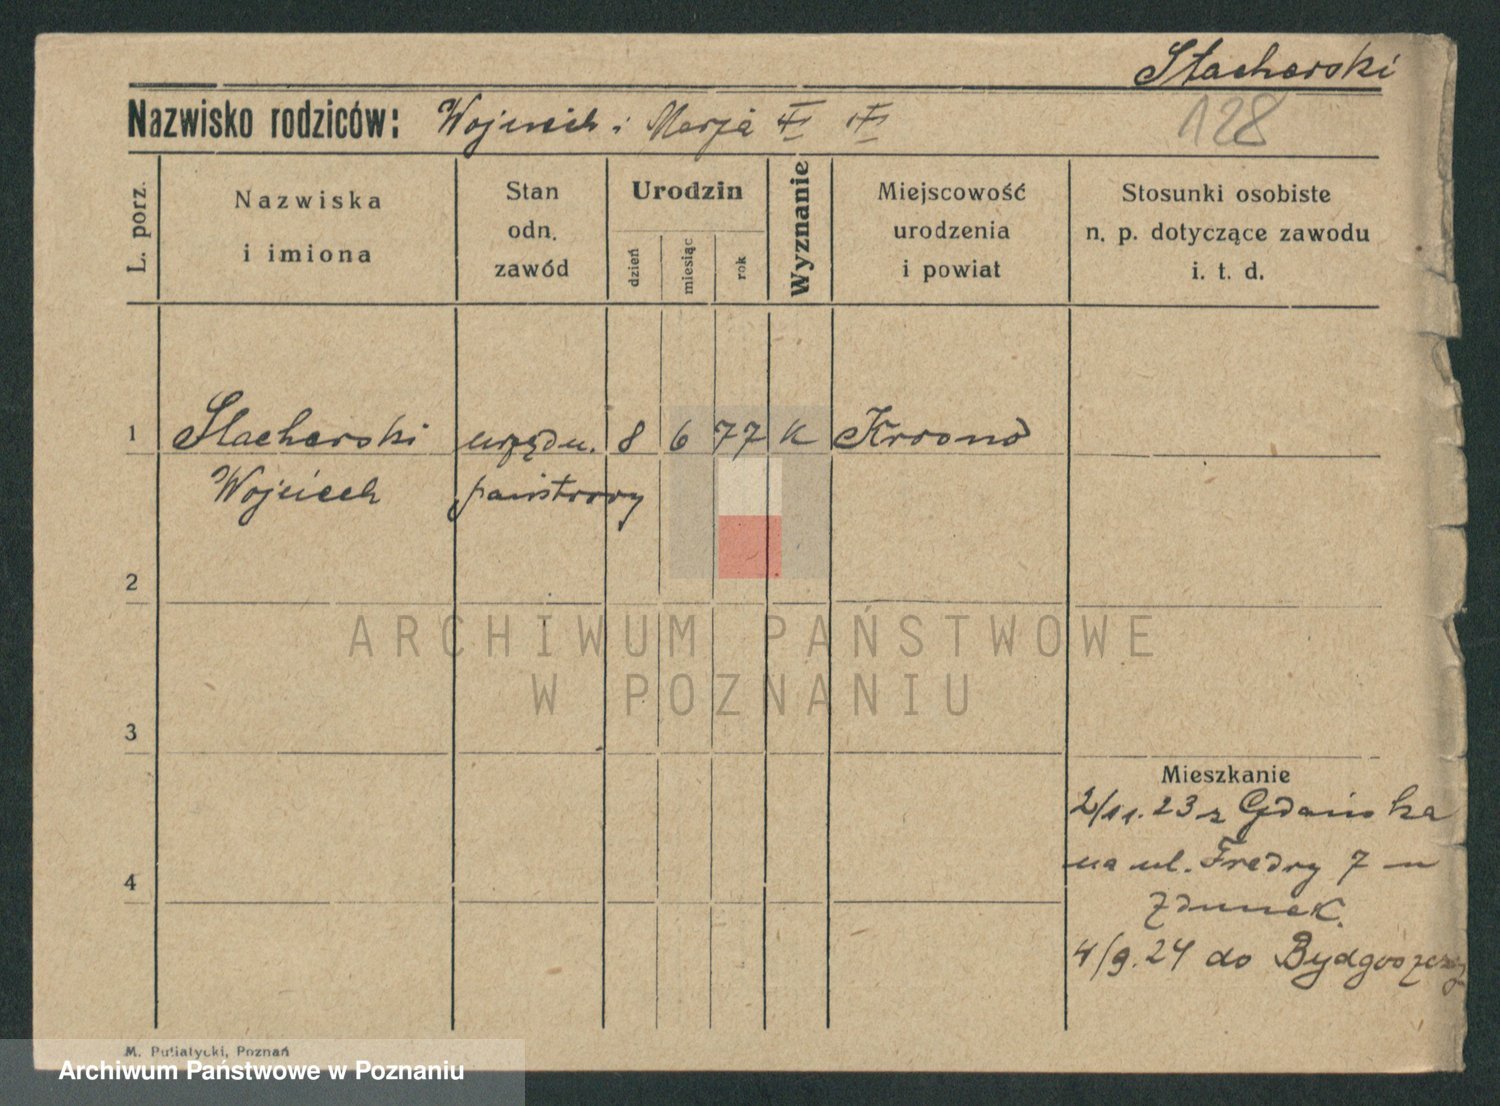 Stacherski
Nazwisko rodziców: Wojciech i Marja
128
L. porz.
Nazwiska
i imiona
Stan
odn.
zawód
Urodzin
dzień
miesiąc
rok
Wyznanie
Miejscowość
urodzenia
i powiat
Stosunki osobiste
n. p. dotyczące zawodu
i. t. d.
1 Stacherski urzędn. 8 6 77 K Krosno
Wojciech państwowy
2
ARCHIWUM PAŃSTWOWE
W POZNANIU
3
Mieszkanie
2/11.23 z Gdańska
na ul. Fredry 7
4
Zdunek.
4/9.24 do Bydgoszczy
M. Putiatycki, Poznań
Archiwum Państwowe w Poznaniu